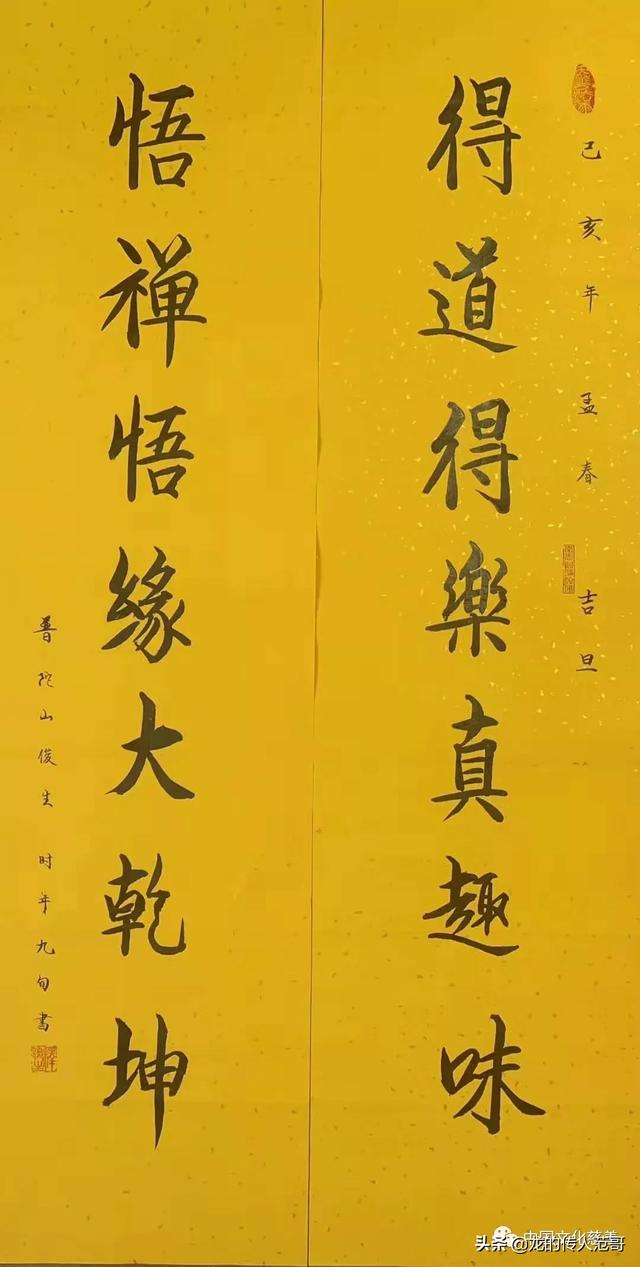 己亥年孟春 吉旦
得道得樂真趣味
悟禪悟緣大乾坤
普陀山俊生 时年九旬書
中国文化慈善
头条 @龙的传人范哥